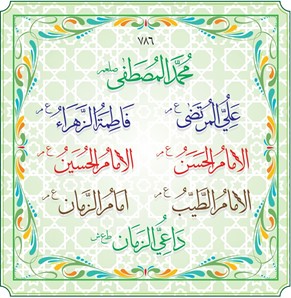 ٧٨٦
محمد المصطفى صلعم
علي المرتضى ع م فاطمة الزهراء ع م
الامام الحسن ع م الامام الحسين ع م
الامام الطيب ع م امام الزمان ع م
داعي الزمان ط ع ش